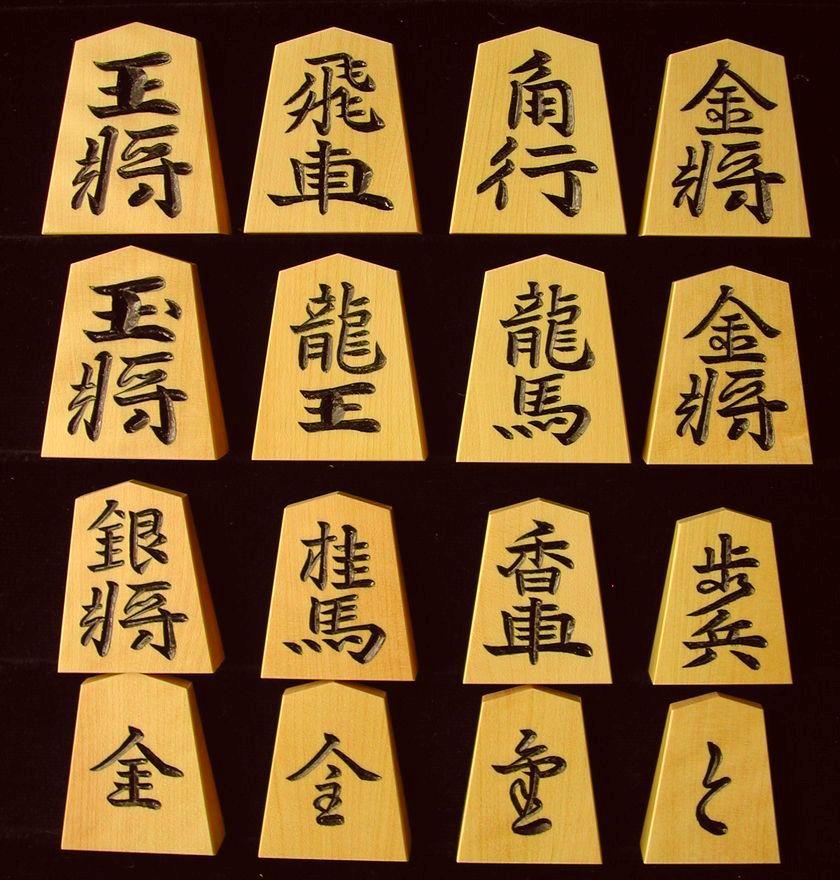 王將
飛車
角行
金將
玉將
龍王
龍馬
金將
銀將
桂馬
香車
歩兵
全
と